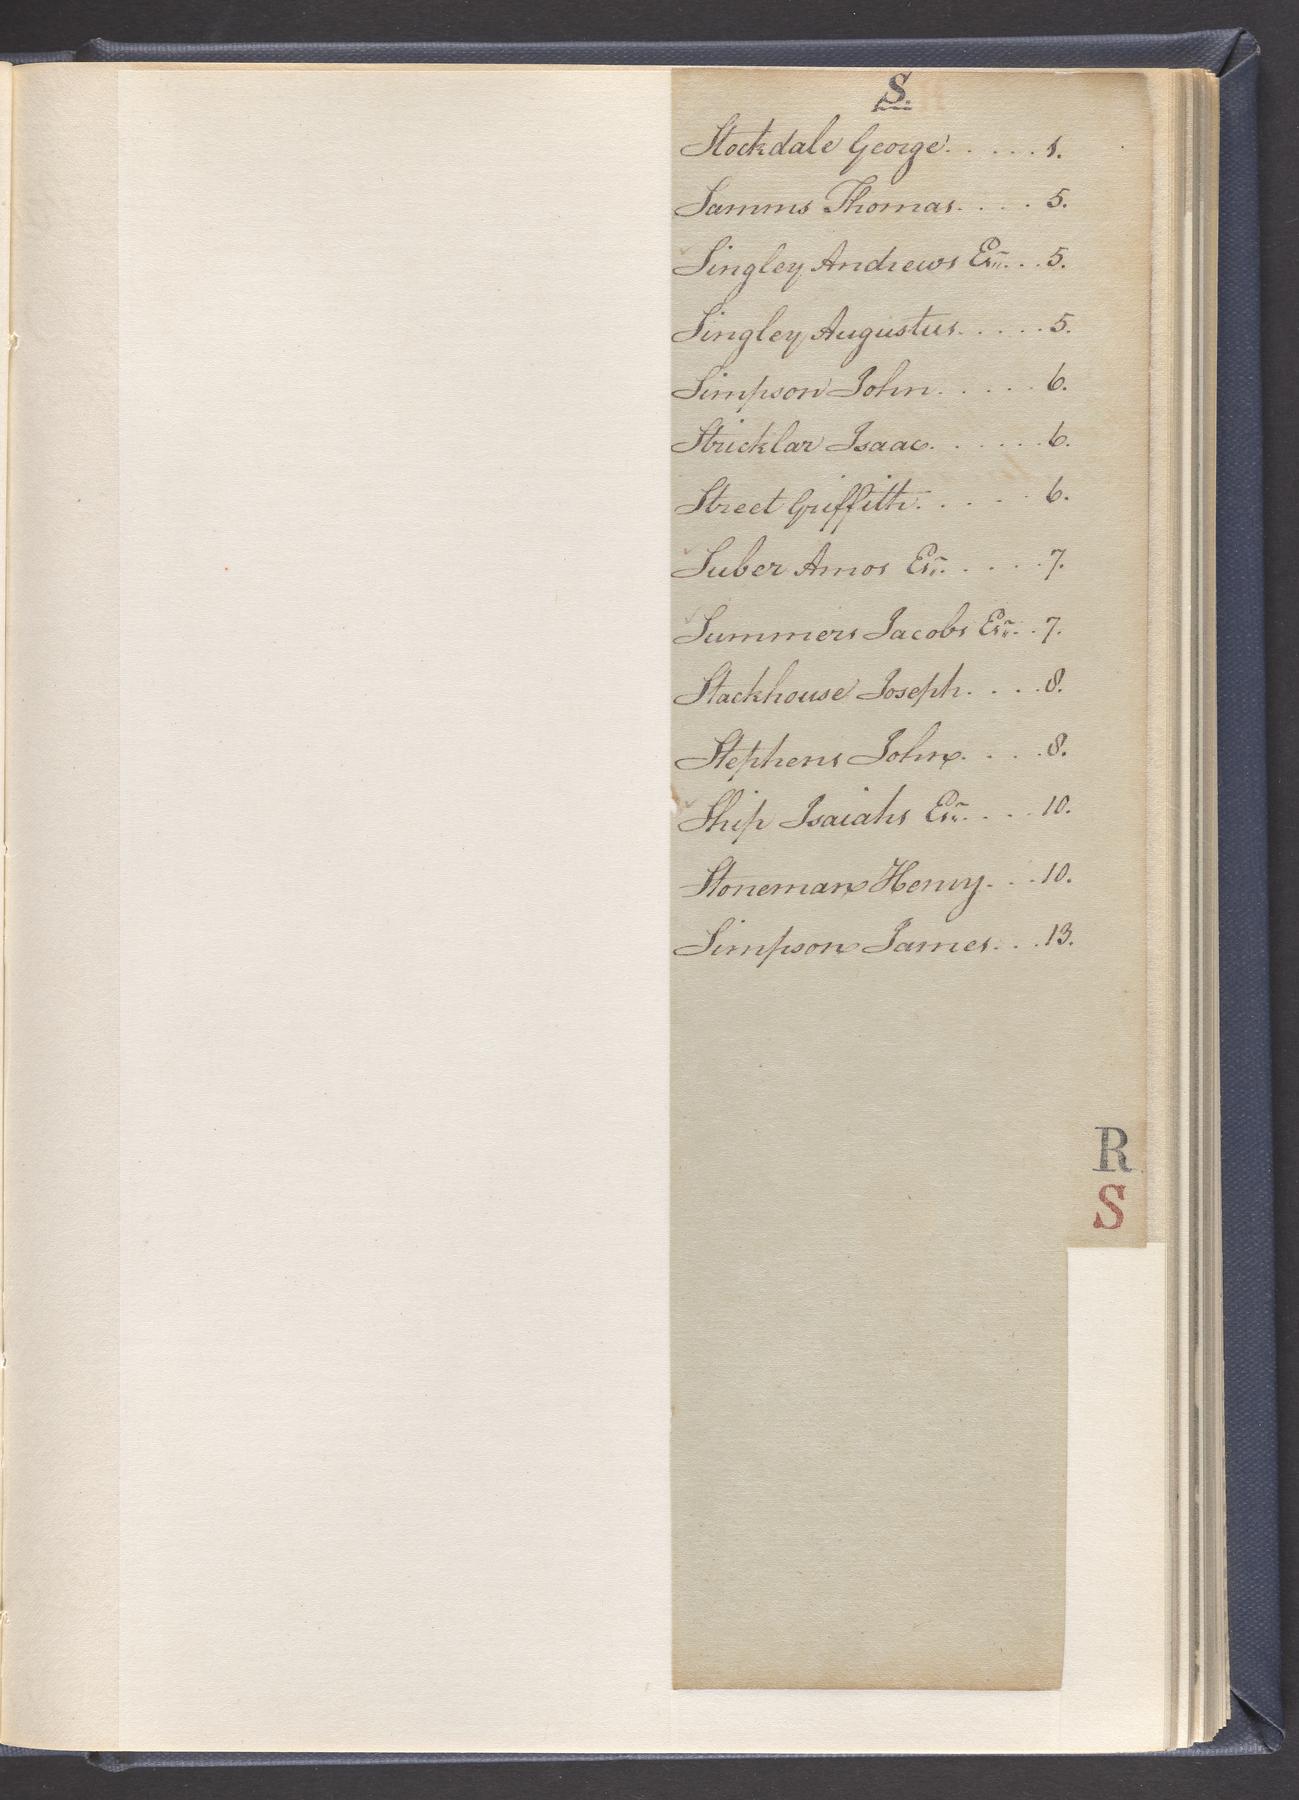 S.
Stockdale George . . . . . 1.
Samms Thomas . . . . 5.
Singley Andrews Exr. . . 5.
Singley Augustus . . . . . 5.
Simpson John . . . . . 6.
Stricklar Isaac . . . . . . 6.
Street Griffith . . . . . 6.
Suber Amos Exr. . . . . 7.
Summers Jacobs Exr. . . 7.
Stackhouse Joseph . . . . 8.
Stephens John . . . . 8.
Ship Isaiahs Exr. . . . 10.
Stoneman Henry . . . 10.
Simpson James . . . 13.
R
S